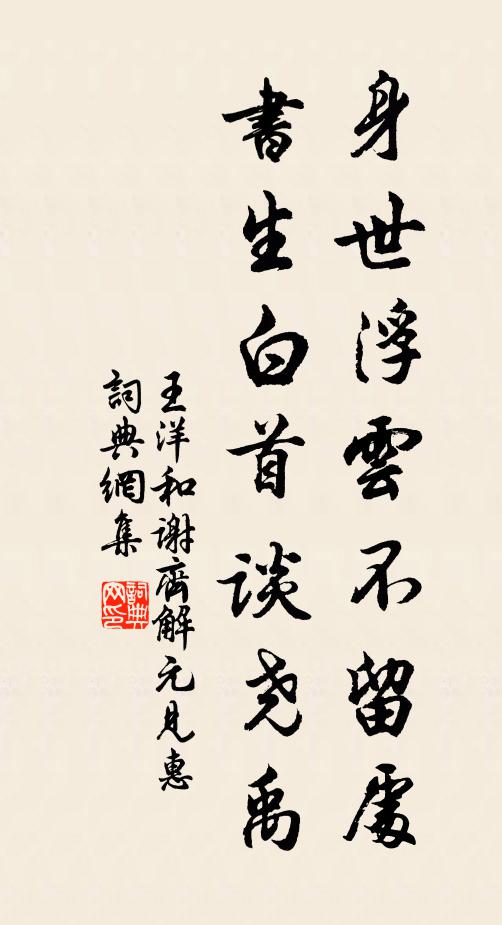 身世浮雲不留處
書生白首談堯禹
王洋和謝齊解元見惠
詞典網集
詞典网印